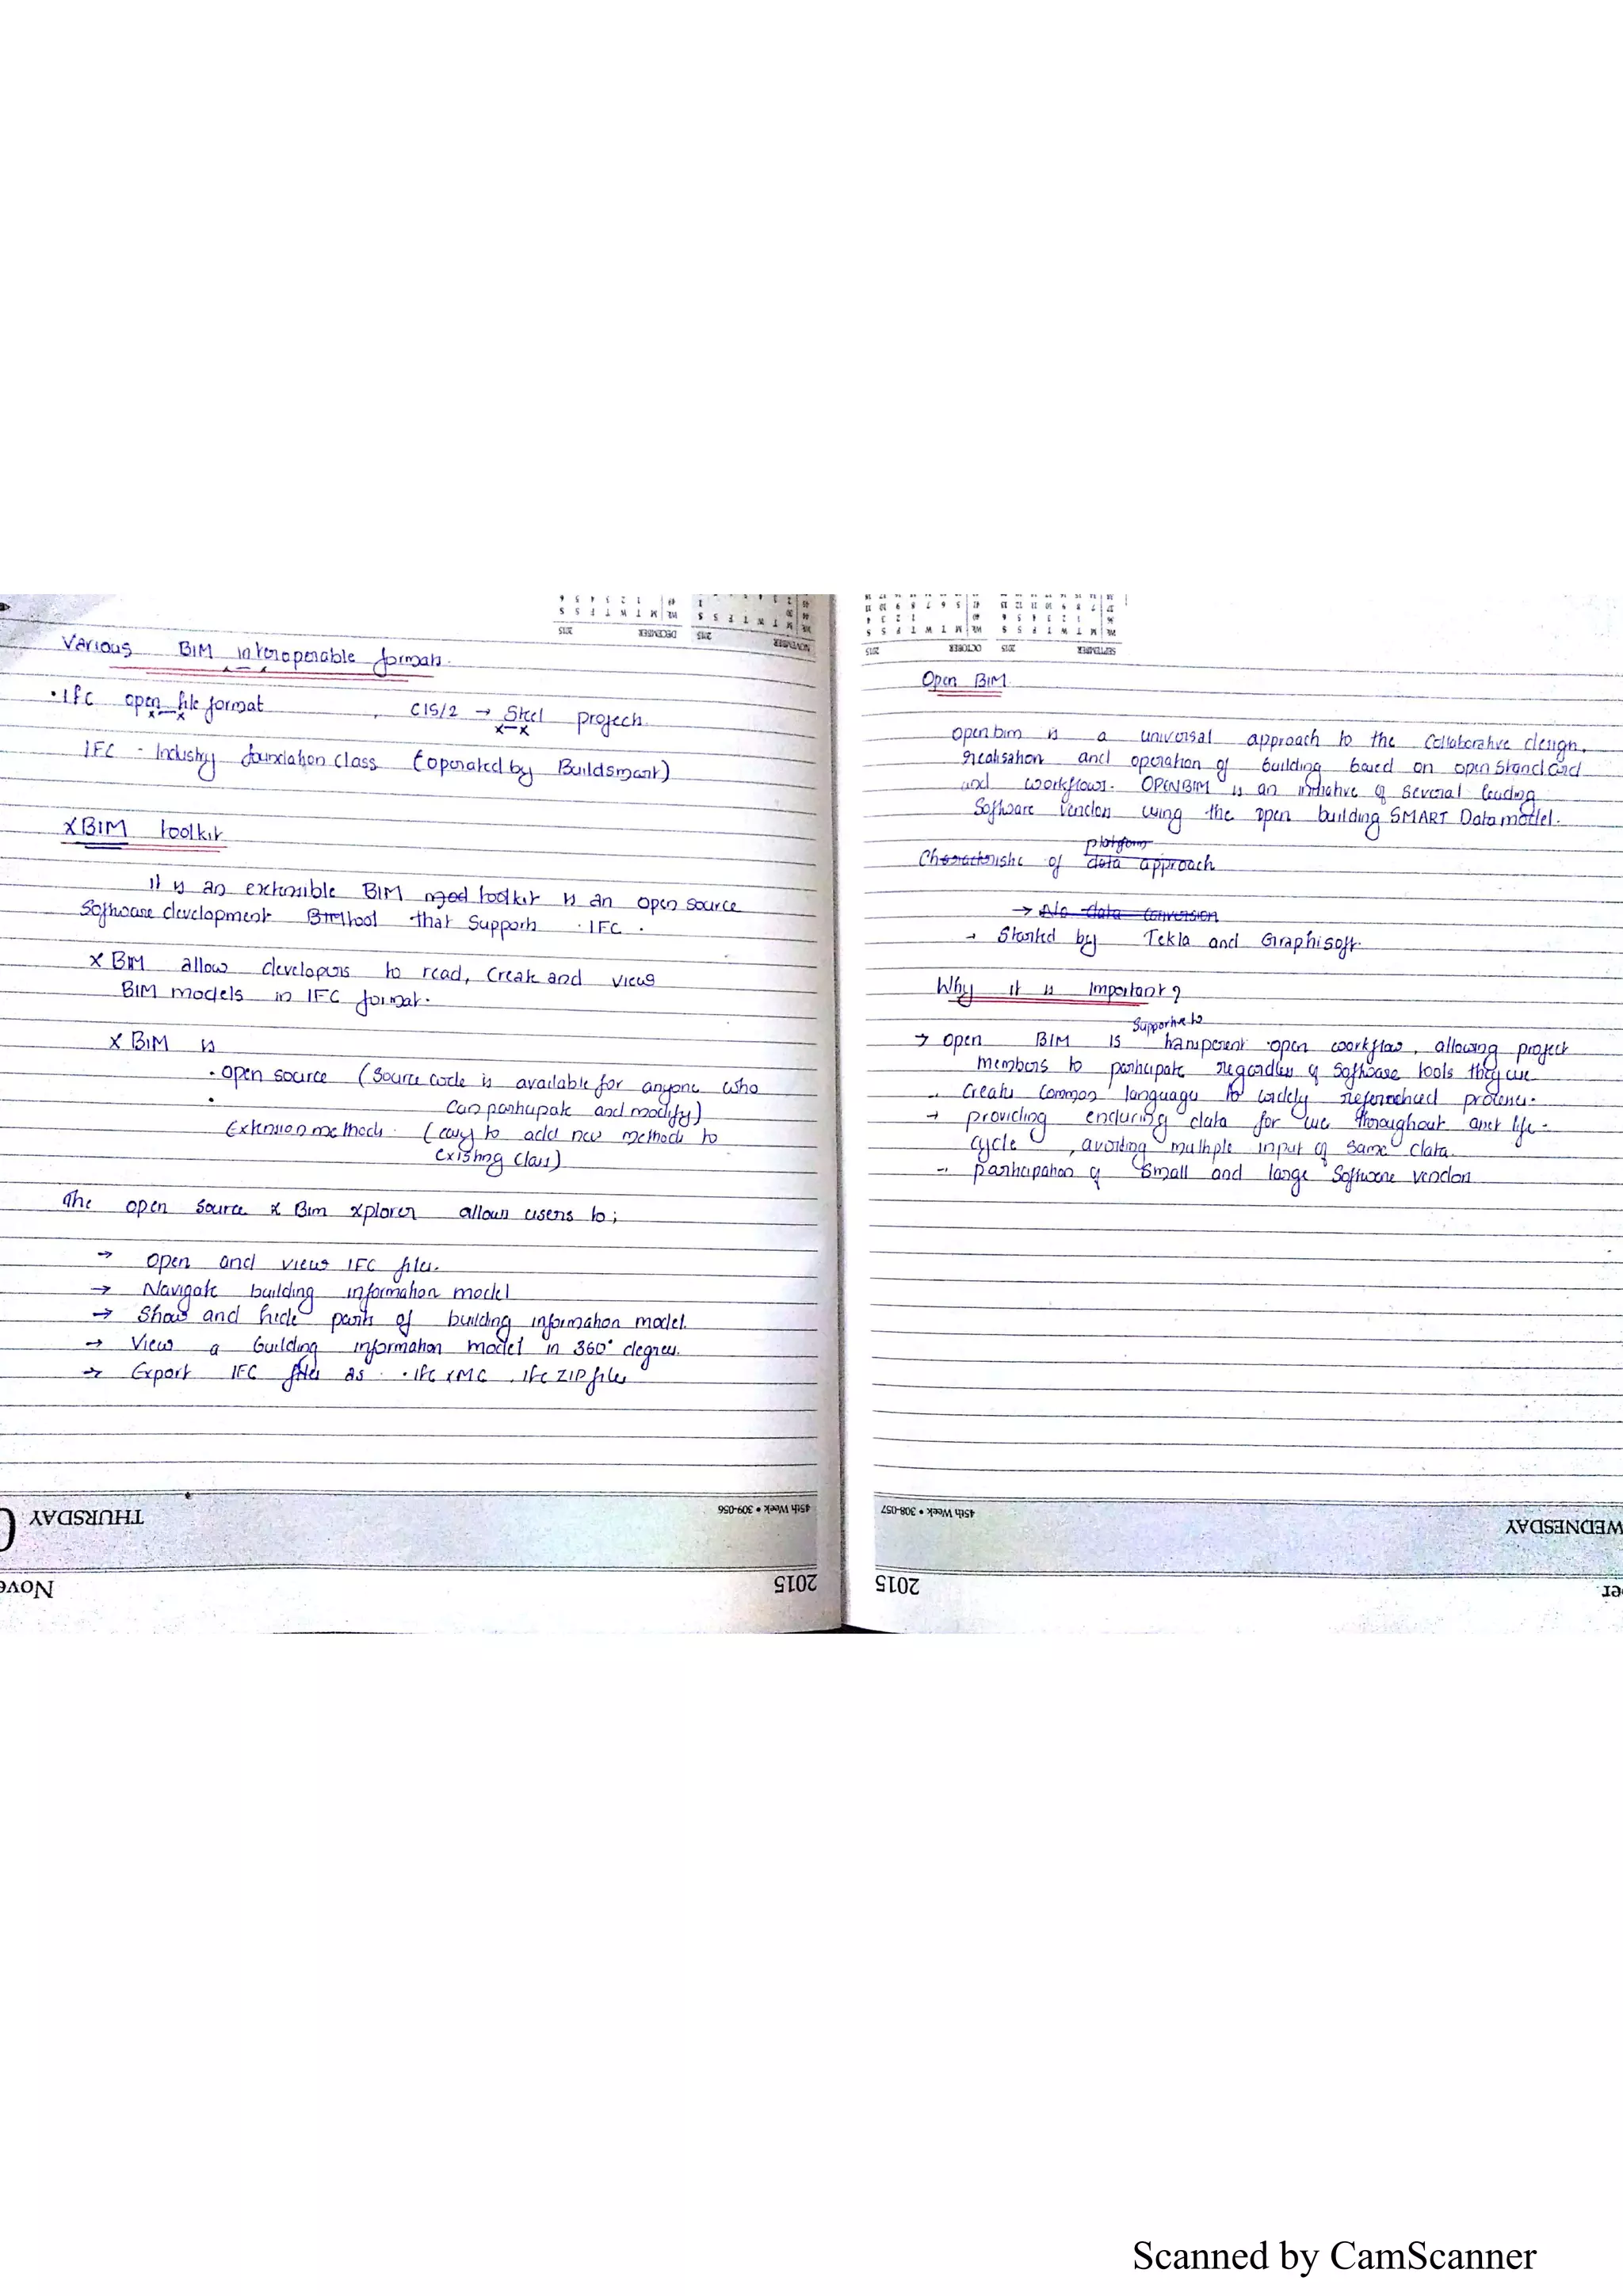 Various BIM interoperable formats.
• IFC open file format , CIS/2 → Steel projects.
IFC - Industry foundation class (operated by Buildsmart)
XBIM toolkit
it is an extensible BIM toolkit is an open source
Software development tool that supports .IFC .
X BIM allow developers to read, Create and view
BIM models in IFC format.
X BIM is
• open source (Source code is available for anyone who
can participate and modify)
• Extension methods. (easy to add new methods to
existing class)
The open source x Bim xplorer allows users to ;
→ Open and view IFC files.
→ Navigate building information model
→ Show and hide parts of building information model.
→ View a building information model in 360° degrees.
→ Export IFC files as . . ifc XML , ifc ZIP files
45th Week • 309-056
THURSDAY
2015
Nove
NOVEMBER 2015
DECEMBER 2015
SEPTEMBER 2015
OCTOBER 2015
Open BIM
open bim is a universal approach to the Collaborative design,
realisation and operation of building based on open Standard
and workflows. OPENBIM is an initiative of Several leading
Software Vendors using the open building SMART Data model.
platform
Characteristic of data approach
→ No data conversion
→ Started by Tekla and Graphisoft.
Why it is Important?
Supportive to
→ open BIM is transperent open workflow, allowing project
members to participate regardless of Software tools they use
→ Creates Common language to widely referenced process.
→ providing enduring data for use throughout asset life-
cycle , avoiding multiple input of same data.
→ participation of Small and large Software vendors
45th Week • 308-057
WEDNESDAY
2015
er
Scanned by CamScanner